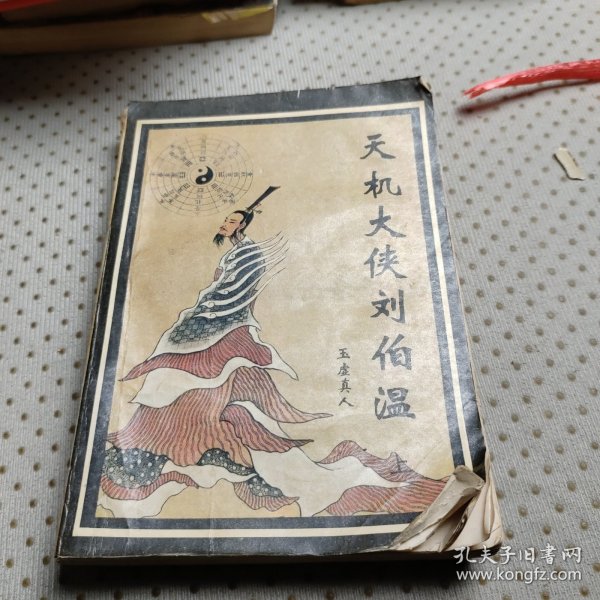 天机大侠刘伯温
上
玉虚真人
孔夫子旧书网
www.kongfz.com